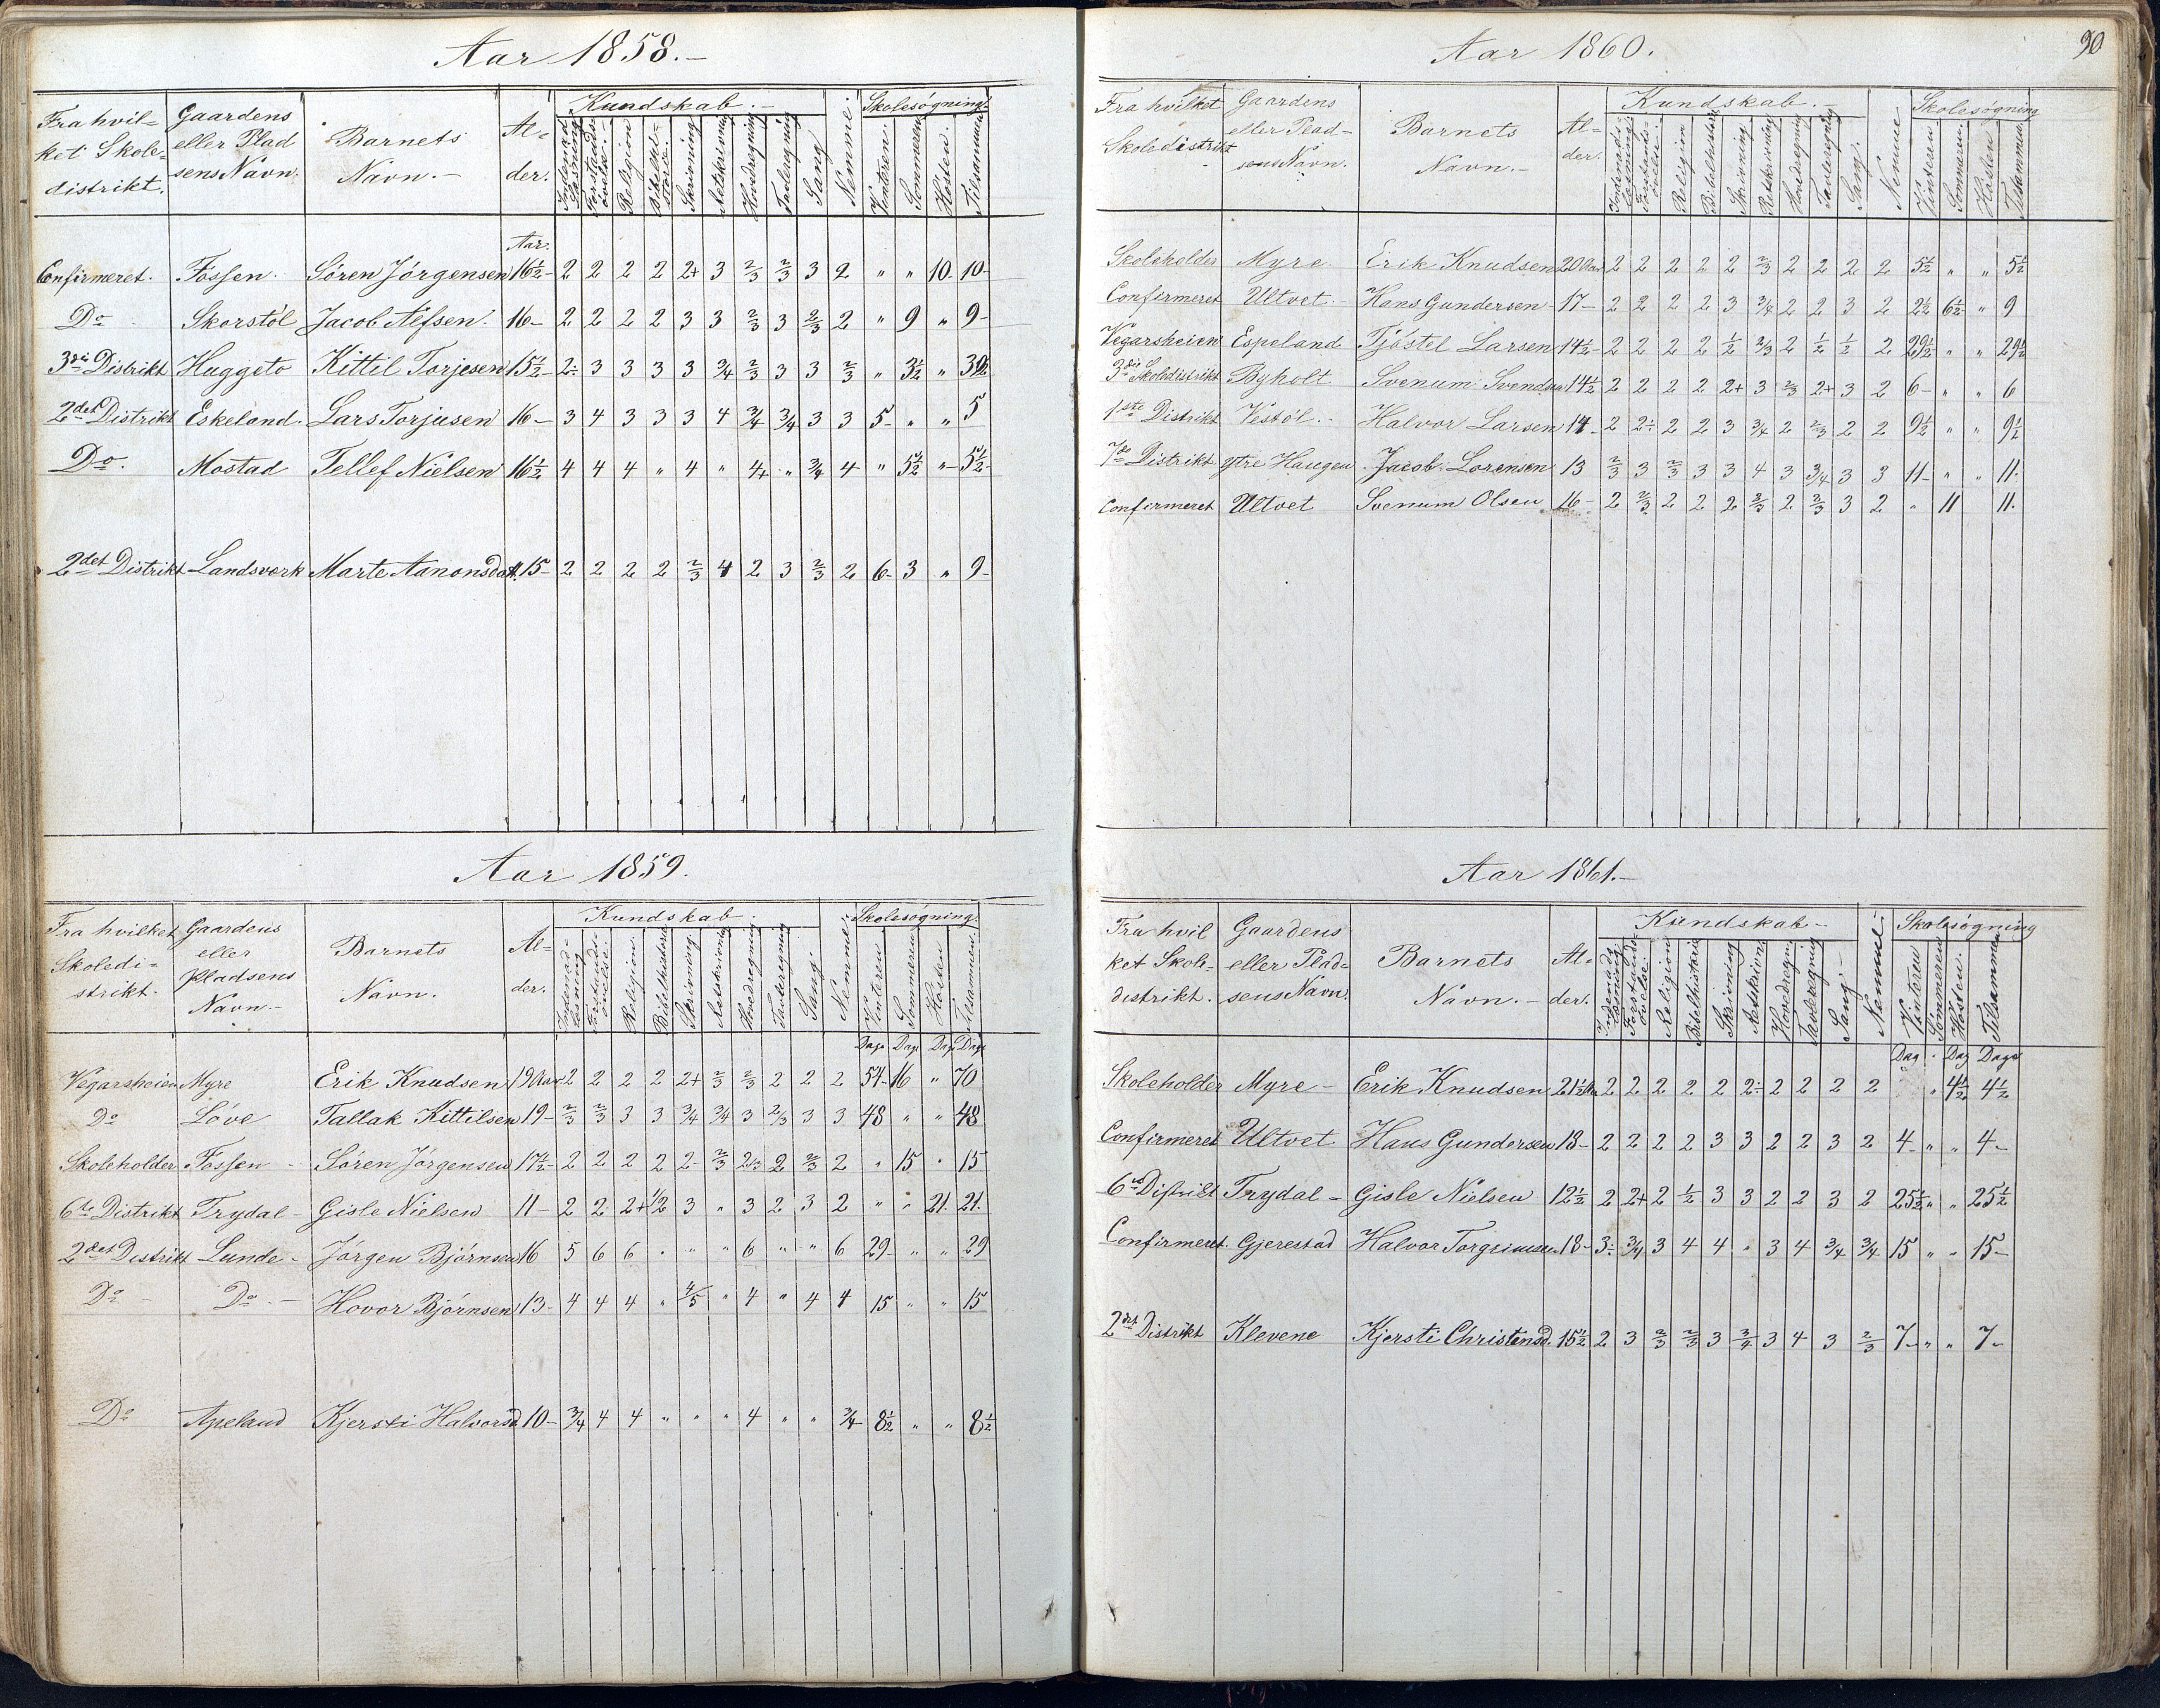 Aar 1858.-
Fra hvil= ket Skole= distrikt. Gaardens eller Plad sens Navn. Barnets Navn.- Al= der. Kundskab.- Nemme. Skolesøgning.
Indenad Læsning Forstands øvelse. Religion Bibelhi= storie. Skrivning Retskrivning Hovedregning Tavleregning Sang Vinteren. Sommeren Høsten. Tilsammen
Aar.
Confirmeret. Fossen. Sören Jörgensen 16½- 2 2 2 2 2+ 3 2/3 2/3 3 2 " " 10 10-
Do Skorstöl Jacob Alfsen. 16- 2 2 2 2 3 3 2/3 3 2/3 2 " 9 " 9-
3die Distrikt Huggeto Kittil Torjesen 15½- 2÷ 3 3 3 3 3/4 2/3 3 3 2/3 " 3½ " 3½
2det Distrikt Eskeland. Lars Torjusen 16- 3 4 3 3 3 4 3/4 3/4 3 3 5- " " 5
Do. Mostad Tellef Nielsen 16½ 4 4 4 " 4 " 4+ " 3/4 4 " 5½ "- 5½-
2det Distrikt Landsverk Marte Aanonsdat. 15- 2 2 2 2 2/3 4 2 3 2/3 2 6- 3 " 9-
Aar 1859.
Fra hvilket Skoledi= strikt. Gaardens eller Pladsens Navn.- Barnets Navn. Al= der. Kundskab. Nemme Skolesøgning.
Indenad= læsning Forstands= øvelse. Religion. Bibelhistorie Skrivning. Retskrivning Hovedregning Tavleregning Sang Vinteren Sommeren Høsten Tilsammen.
Dage Dage Dage Dage
Vegarsheien Myre Erik Knudsen 19 Aar 2 2 2 2 2+ 2/3 2/3 2 2 2 54- 16 " 70
Do Löve Tallak Kittilsen 19- 2/3 2/3 3 3 3/4 3/4 3 2/3 3 3 48 " " 48
Skoleholder Fossen - Sören Jörgensen 17½- 2 2 2 2 2- 2/3 2/3 2 2/3 2 " 15 " 15
6te Distrikt Trydal- Gisle Nielsen 11- 2 2 2+ ½ 3 " 3 2 3 2 " " 21. 21.
2det Distrikt Lunde- Jörgen Björnsen 16 5 6 6 " " " 6 " " 6 29- " " 29
Do - Do.- Hovor Björnsen 13- 4 4 4 " 4/5 " 4 " 4 4 15 " " 15
Do Apeland Kjersti Halvorsd 10- 3/4 4 4 " " " 4 " " 3/4 8½ " " 8½
90
Aar 1860.
Fra hvilket Skoledistrikt Gaardens eller Plad= sens Navn. Barnets Navn.- Al= der. Kundskab.- Nemme Skolesøgning
Indenads= læsning Forstands= øvelse. Religion Bibelhistorie Skrivning Retskrivning Hovedregning Tavleregning Sang. Vinteren Sommeren. Høsten Tilsammen
Skoleholder Myre Erik Knudsen 20 Aar 2 2 2 2 2 2/3 2 2 2 2 5½ " " 5½
Confirmeret Ultvet. Hans Gundersen- 17- 2 2 2 2 3 3/4 2 2 3 2 2½ 6½ " 9
Vegarsheien Espeland Tjöstel Larsen 14½- 2 2 2 2 ½ 2/3 2 ½ ½ 2 29½ " " 29½
3die Skoledistrikt Byholt Svenum Svendsen 14½ 2 2 2 2 2+ 3 2/3 2+ 3 2 6- " " 6
1ste Distrikt Vestöl.- Halvor Larsen 14- 2 2÷ 2 2 3 3/4 2 2/3 2 2 9½ " " 9½
7de Distrikt ytre Haugen Jacob Lorensen 13 2/3 3 2/3 3 3 4 3 3/4 3 3 11- " " 11.
Confirmeret Ultvet Svenum Olsen 16- 2 2/3 2 2 2 2/3 2 2/3 3 2 " 11 11.
Aar 1861.-
Fra hvil ket Skole= distrikt. Gaardens eller Plad= sens Navn. Barnets Navn.- Al= der. Kundskab- Nemme.- Skolesøgning
Indenads Læsning Forstands= øvelse. Religion Bibelhistorie Skrivning Retskivn. Hovedregn. Tavleregning Sang.- Vinteren Sommeren Høsten. Tilsammen
Dag " Dag Dage
Skoleholder Myre- Erik Knudsen 21½ Aar 2 2 2 2 2 2÷ 2 2 2 2 " " 4½ 4½
Confirmeret Ultvet Hans Gundersen 18- 2 2 2 2 3 3 2 2 3 2 4- " " 4-
6te Distrikt Trydal- Gisle Nielsen 12½ 2 2+ 2 ½ 3 3 2 2 3 2 25½ " " 25½
Confirmeret. Gjerestad Halvor Torgrimsen 18- 3÷ 3/4 3 4 4 " 3 4 3/4 3/4 15 " " 15-
2det Distrikt Klevene Kjersti Christensd. 15½ 2 3 2/3 2/3 3 3/4 3 4 3 2/3 7- " " 7-